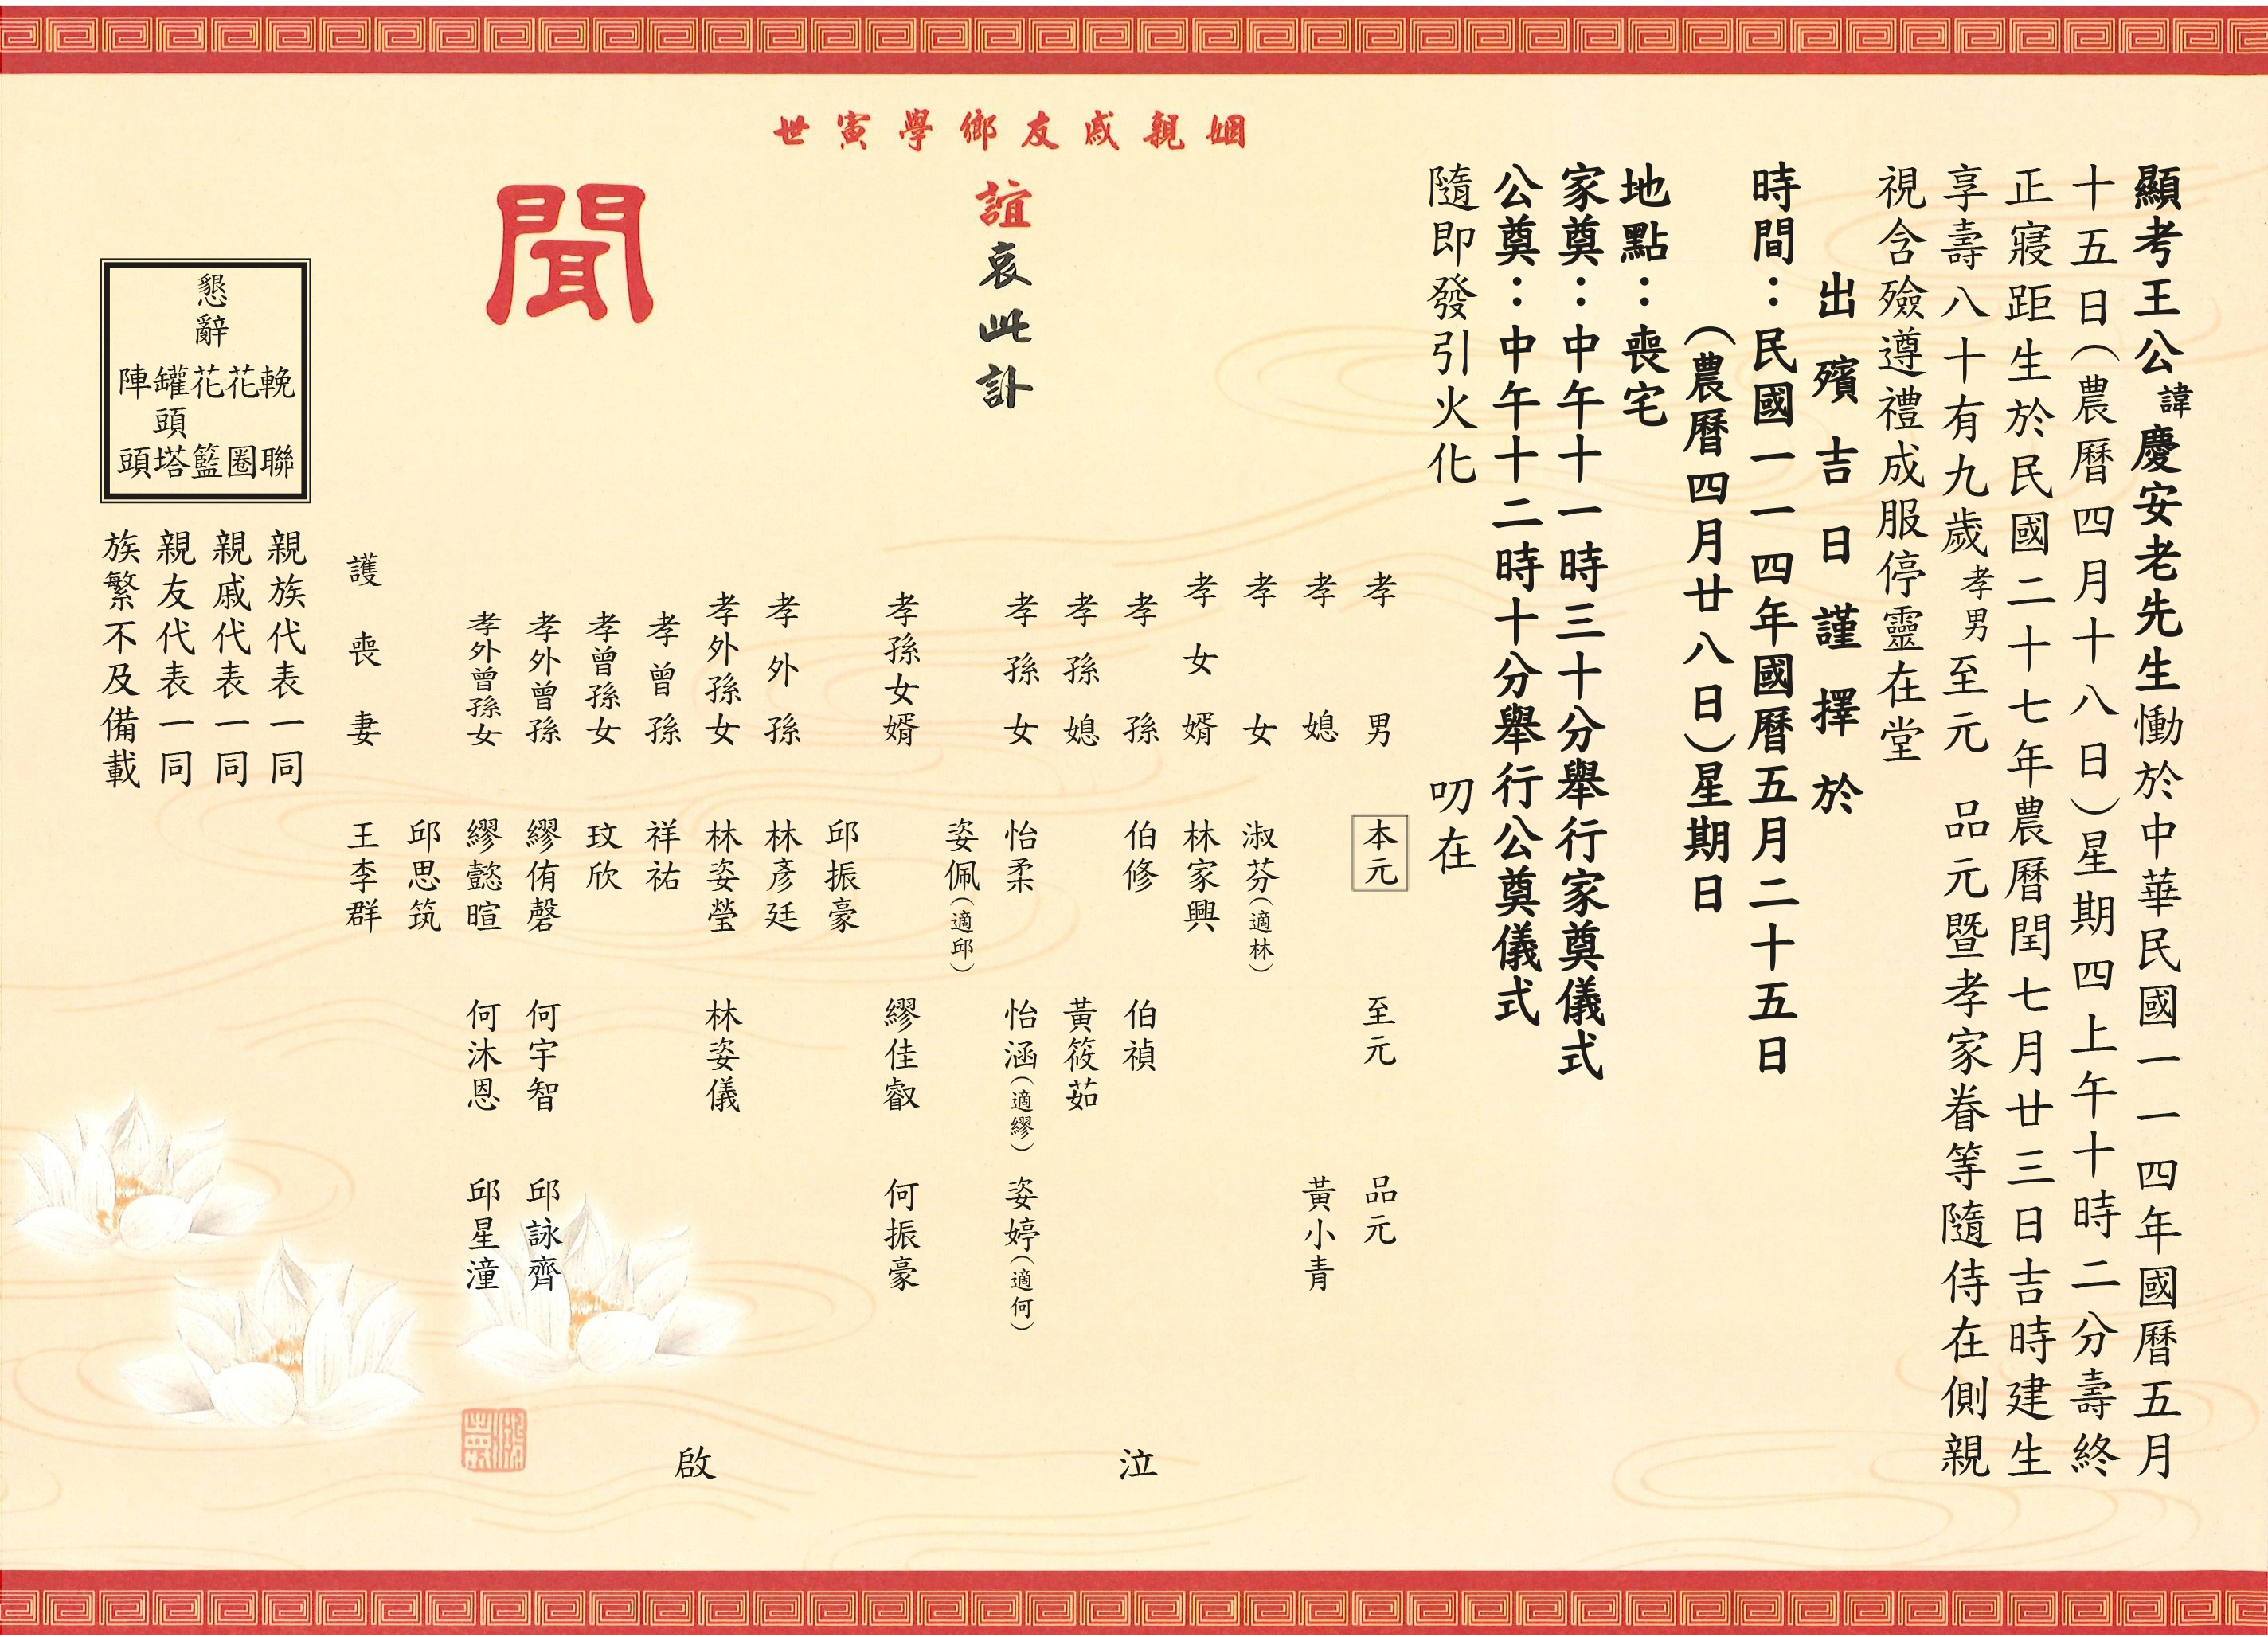 顯考王公諱慶安老先生慟於中華民國一一四年國曆五月
十五日(農曆四月十八日)星期四上午十時二分壽終
正寢距生於民國二十七年農曆閏七月廿三日吉時建生
享壽八十有九歲孝男至元 品元暨孝家眷等隨侍在側親
視含殮遵禮成服停靈在堂
出殯吉日謹擇於
時間：民國一一四年國曆五月二十五日
(農曆四月廿八日)星期日
地點：喪宅
家奠：中午十一時三十分舉行家奠儀式
公奠：中午十二時十分舉行公奠儀式
隨即發引火化 叨在
姻親戚友鄉學寅世
誼哀此訃
聞
孝男 本元 至元 品元
孝媳 黃小青
孝女 淑芬(適林)
孝女婿 林家興
孝孫 伯修 伯禎
孝孫媳 黃筱茹
孝孫女 怡柔 怡涵(適繆) 姿婷(適何)
姿佩(適邱)
孝孫女婿 繆佳叡 何振豪
邱振豪
孝外孫 林彥廷
孝外孫女 林姿瑩 林姿儀
孝曾孫 祥祐
孝曾孫女 玟欣
孝外曾孫 繆侑磬 何宇智 邱詠齊
孝外曾孫女 繆懿暄 何沐恩 邱星潼
邱思筑
護喪妻 王李群
泣
啟
懇辭
輓聯
花圈
花籃
罐頭塔
陣頭
親族代表一同
親戚代表一同
親友代表一同
族繁不及備載